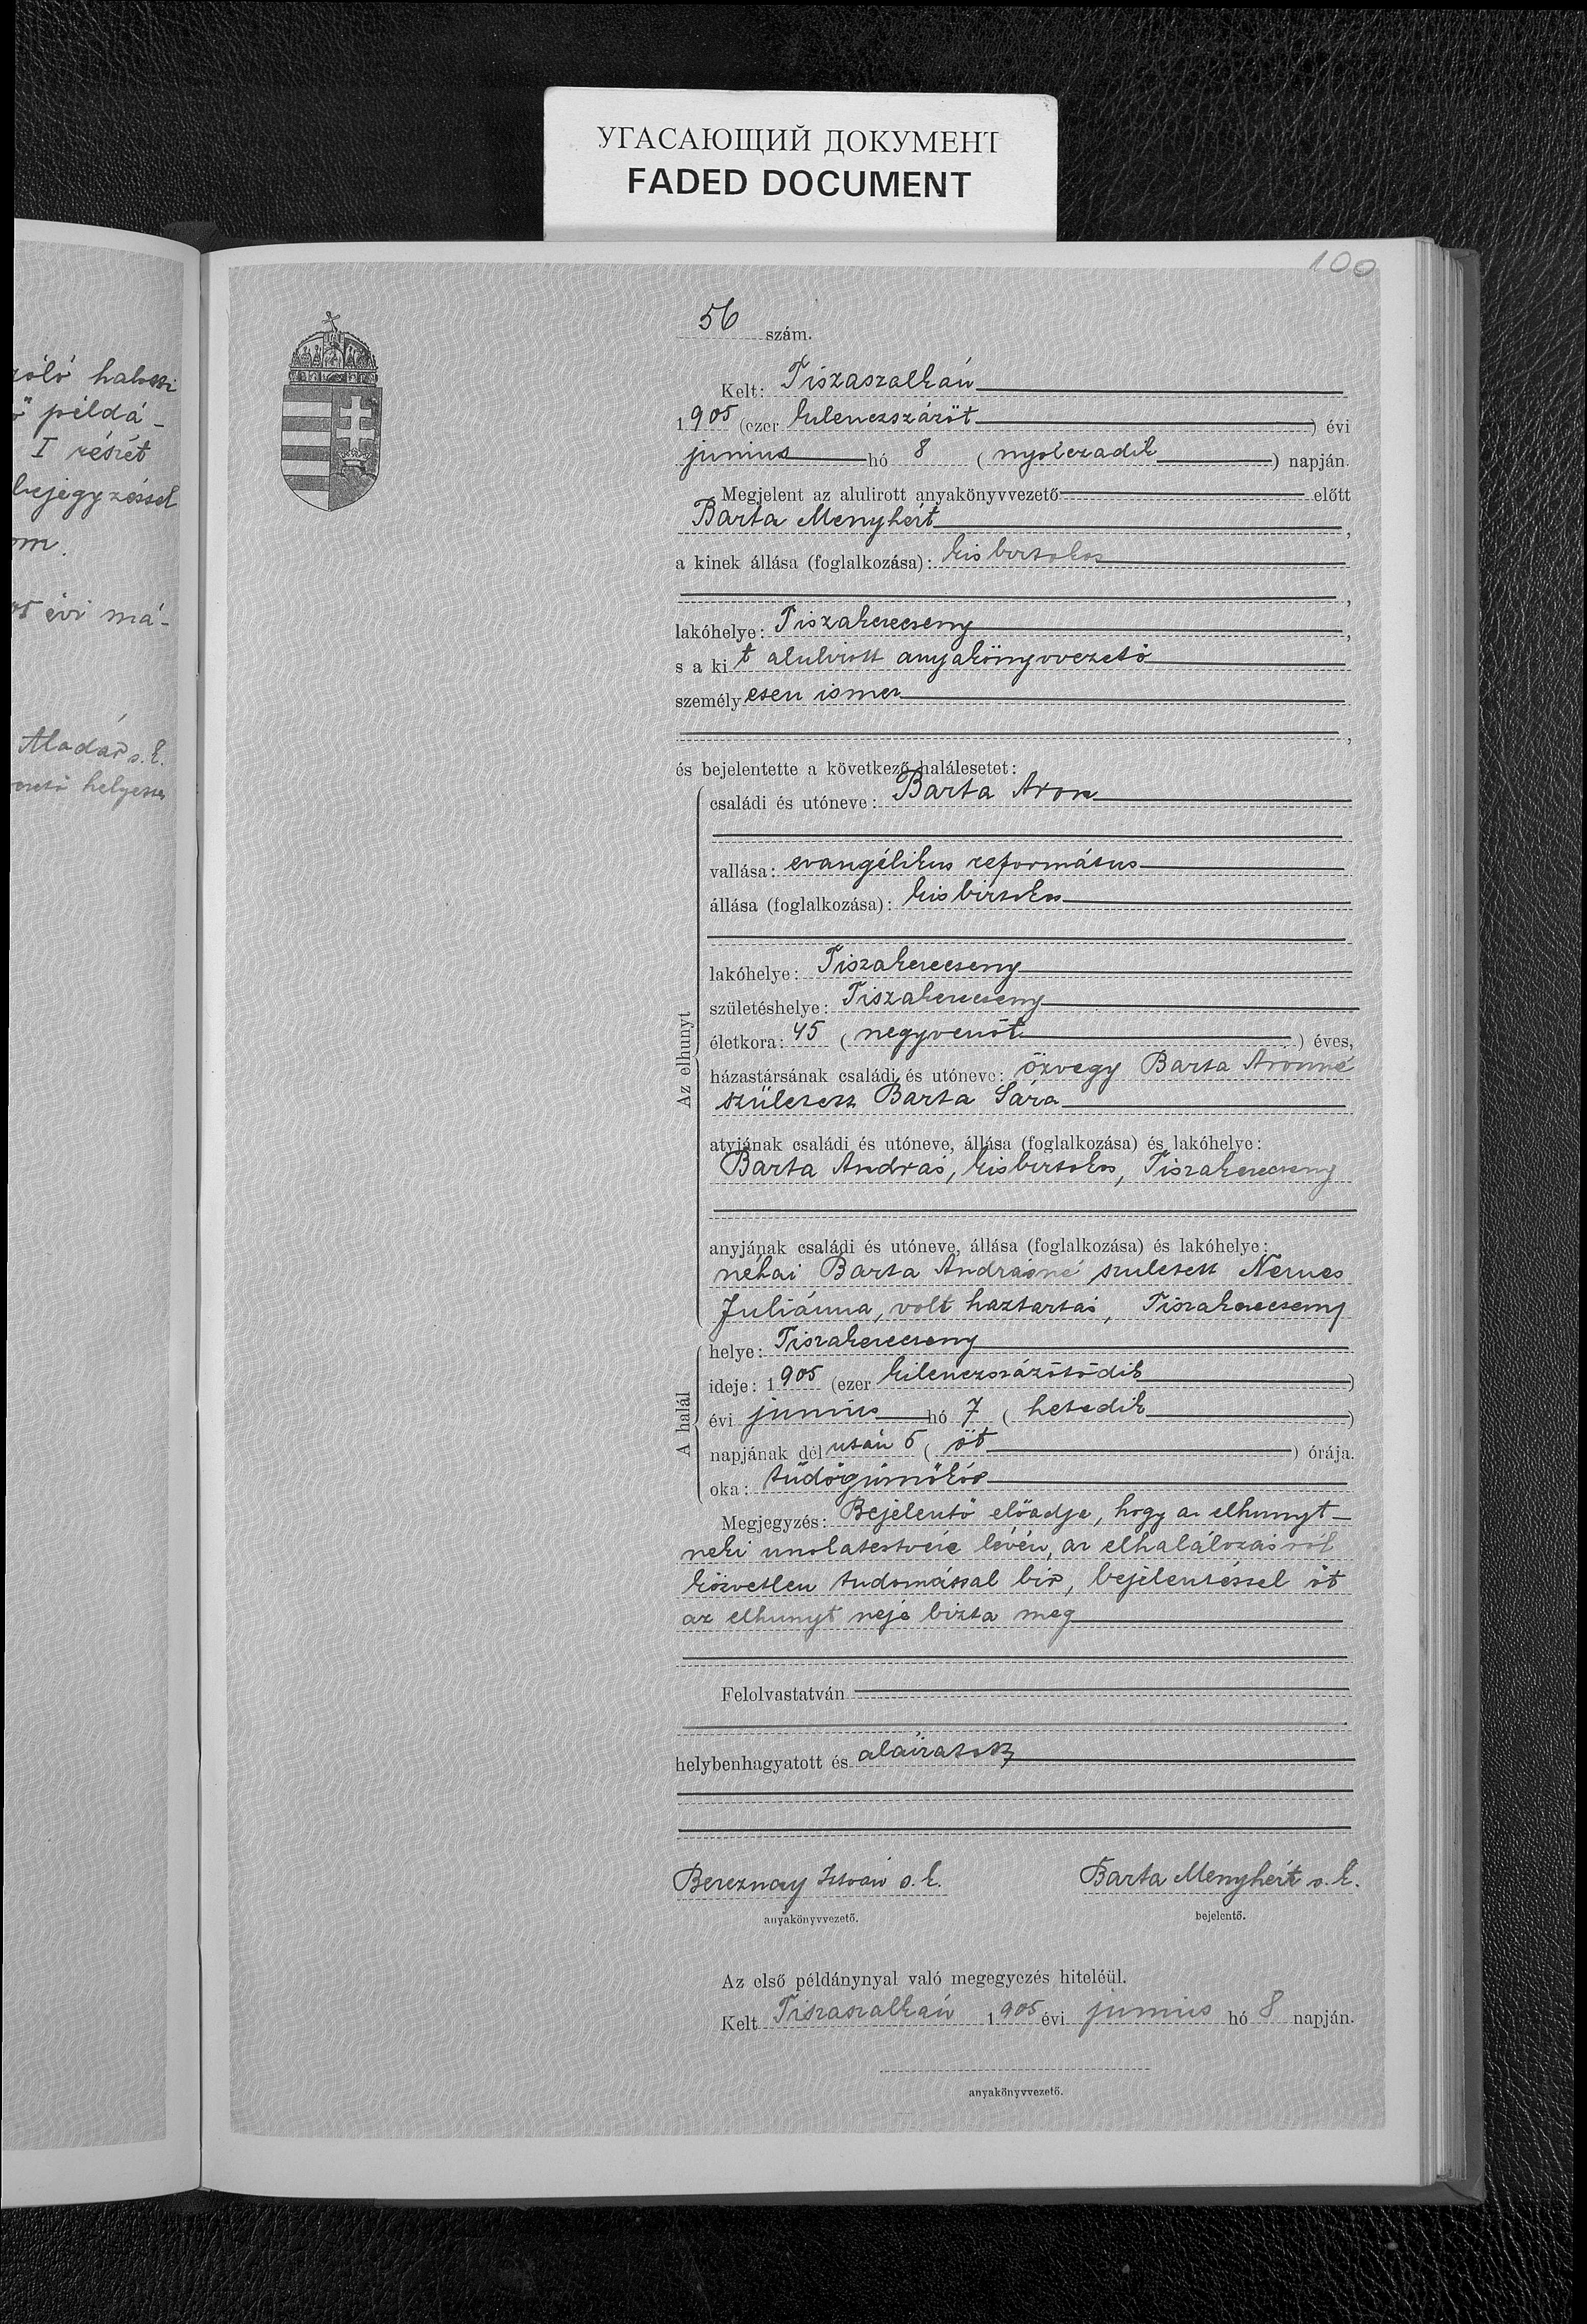 УГАСАЮЩИЙ ДОКУМЕНТ
FADED DOCUMENT
100
példá-
I részét
bejegyzéssel
om.
05 évi má-
Aladár s. k.
helyettes
56 szám.
Kelt: Tiszaszalkán
1905 (ezer kilenczszázöt ) évi
junius hó 8 ( nyolczadik ) napján.
Megjelent az alulirott anyakönyvvezető előtt
Barta Menyhért ,
a kinek állása (foglalkozása): kisbirtokos
,
lakóhelye: Tiszakerecseny ,
s a kit alulirott anyakönyvvezető
személyesen ismer
,
és bejelentette a következő halálesetet:
Az elhunyt
családi és utóneve: Barta Áron
vallása: evangélikus református
állása (foglalkozása): kisbirtokos
lakóhelye: Tiszakerecseny
születéshelye: Tiszakerecseny
életkora: 45 ( negyvenöt ) éves,
házastársának családi és utóneve: özvegy Barta Áronné
született Barta Sára
atyjának családi és utóneve, állása (foglalkozása) és lakóhelye:
Barta András, kisbirtokos, Tiszakerecseny
anyjának családi és utóneve, állása (foglalkozása) és lakóhelye:
néhai Barta Andrásné született Nemes
Juliánna, volt háztartás, Tiszakerecseny
A halál
helye: Tiszakerecseny
ideje: 1905 (ezer kilenczszázötödik )
évi junius hó 7 ( hetedik )
napjának dél után 5 ( öt ) órája.
oka: tüdőgümőkór
Megjegyzés: Bejelentő előadja, hogy az elhunyt-
neki unokatestvére lévén, az elhalálozásról
közvetlen tudomással bir, bejelentéssel őt
az elhunyt neje bizta meg
Felolvastatván
helybenhagyatott és aláiratott
Bereznay István s. k. Barta Menyhért s. k.
anyakönyvvezető. bejelentő.
Az első példánynyal való megegyezés hiteléül.
Kelt Tiszaszalkán 1905 évi junius hó 8 napján.
anyakönyvvezető.